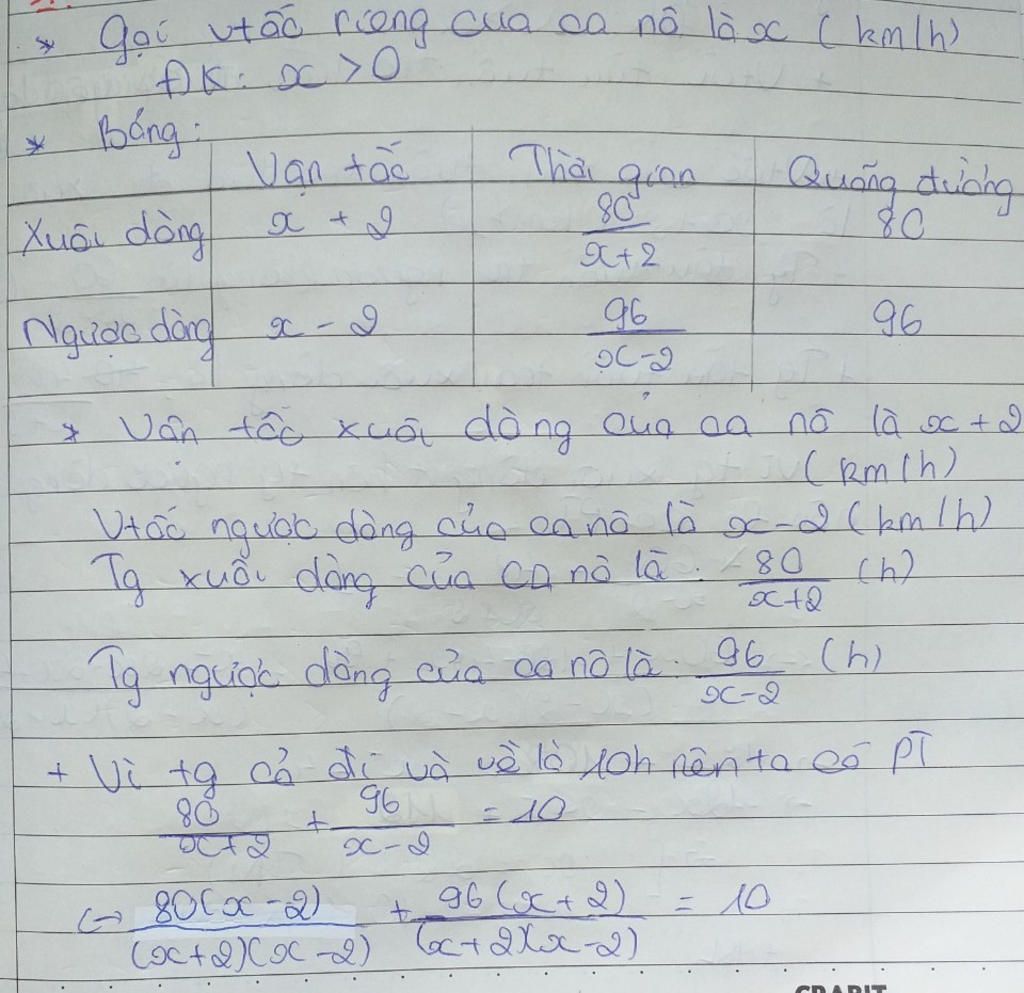 * Gọi vtốc riêng của ca nô là x (km/h)
ĐK: x > 0
* Bảng:
Vận tốc Thời gian Quãng đường
Xuôi dòng x + 2 80/(x+2) 80
Ngược dòng x - 2 96/(x-2) 96
* Vận tốc xuôi dòng của ca nô là x + 2
(km/h)
Vtốc ngược dòng của ca nô là x - 2 (km/h)
Tg xuôi dòng của ca nô là 80/(x+2) (h)
Tg ngược dòng của ca nô là 96/(x-2) (h)
+ Vì tg cả đi và về là 10h nên ta có PT
80/(x+2) + 96/(x-2) = 10
<-> 80(x-2)/((x+2)(x-2)) + 96(x+2)/((x+2)(x-2)) = 10